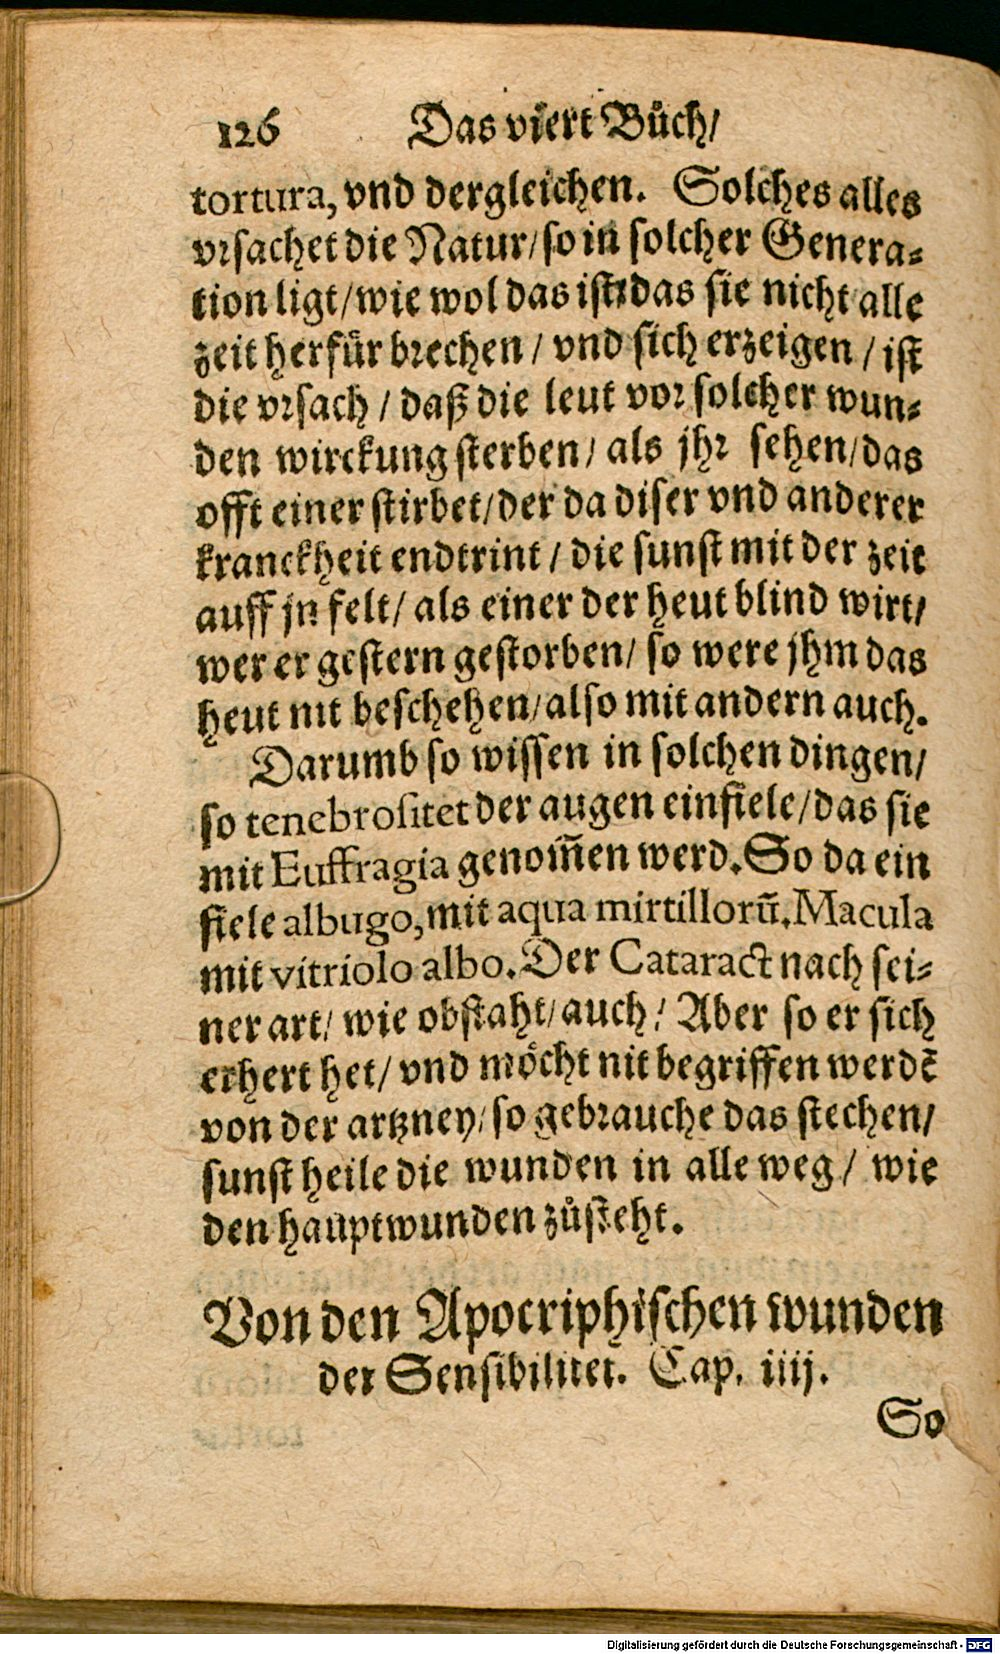 126 Das viert Bůch/
tortura, vnd dergleichen. Solches alles
vrsachet die Natur/so in solcher Genera-
tion ligt/wie wol das ist/das sie nicht alle
zeit herfür brechen / vnd sich erzeigen / ist
die vrsach / daß die leut vor solcher wun-
den wirckung sterben/ als jhr sehen/das
offt einer stirbet/der da diser vnd anderer
kranckheit endtrint / die sunst mit der zeit
auff jn felt/ als einer der heut blind wirt/
wer er gestern gestorben/ so were jhm das
heut nit beschehen/also mit andern auch.
Darumb so wissen in solchen dingen/
so tenebrositet der augen einfiele/das sie
mit Euffragia genom̃en werd. So da ein
fiele albugo, mit aqua mirtillorũ. Macula
mit vitriolo albo. Der Cataract nach sei-
ner art/ wie obstaht/auch/ Aber so er sich
erhert het/ vnd möcht nit begriffen werdẽ
von der artzney/so gebrauche das stechen/
sunst heile die wunden in alle weg/ wie
den hauptwunden zůsteht.
Von den Apocriphischen wunden
der Sensibilitet. Cap. iiij.
So
Digitalisierung gefördert durch die Deutsche Forschungsgemeinschaft - DFG